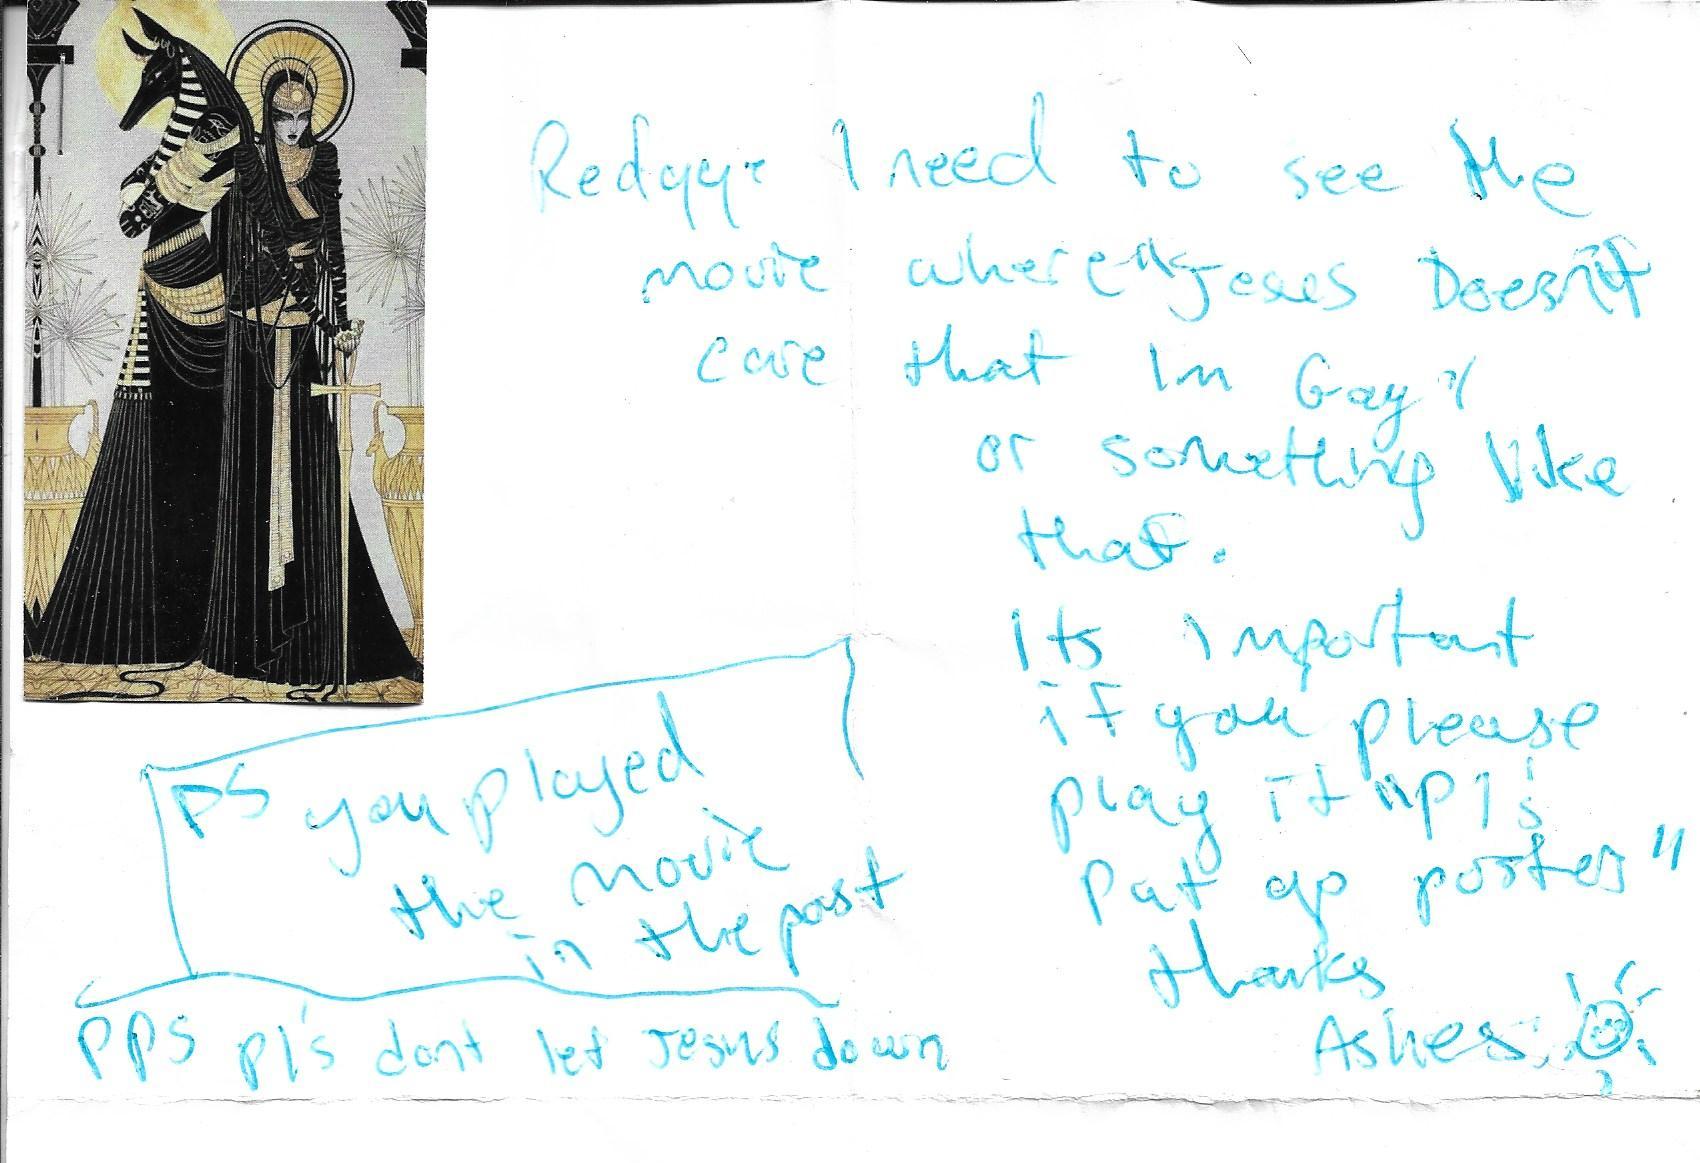 I need to see the
movie where "Jeses Doesn't
care that Im Gay"
or something like
that.
Its important
if you please
play it "pl's
Put up poster"
thanks
Ashes
PS you played
the movie
in the past
PPS pl's dont let Jesus down